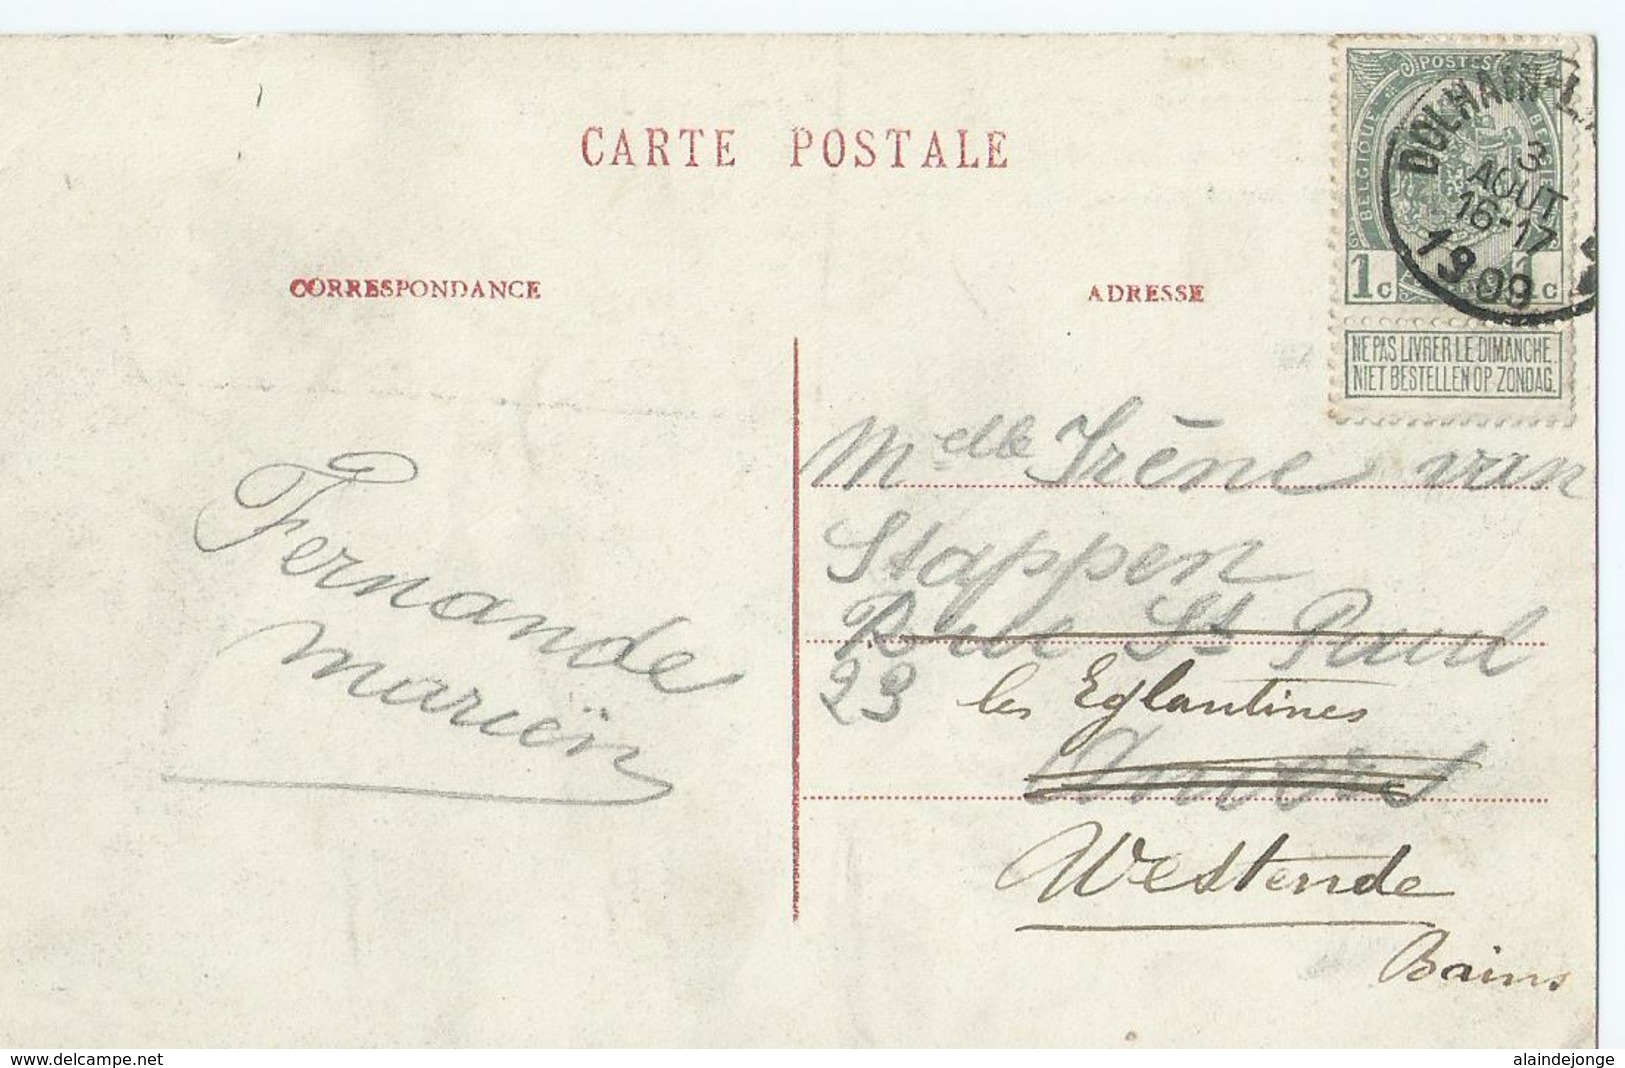 CARTE POSTALE
CORRESPONDANCE
ADRESSE
POSTES
BELGIQUE
BELGIE
1 C
1 C
DOLHAIN-L
3
AOUT
16-17
1909
NE PAS LIVRER LE DIMANCHE.
NIET BESTELLEN OP ZONDAG.
Fernande
Mariën
Melle Irène van
Stappen
Rue St Paul
23 les Eglantines
Anvers
Westende
Bains
www.delcampe.net
alaindejonge